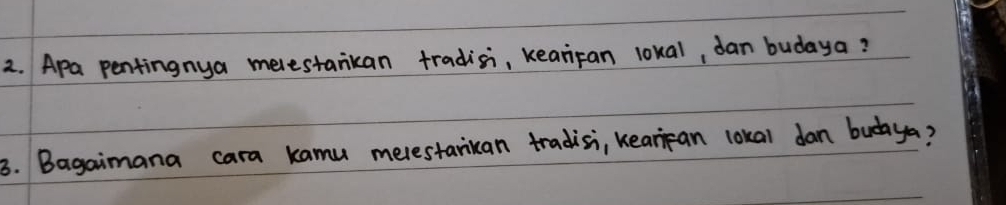 2. Apa pentingnya melestarikan tradisi, kearifan lokal, dan budaya?
3. Bagaimana cara kamu melestarikan tradisi, kearifan lokal dan budaya?